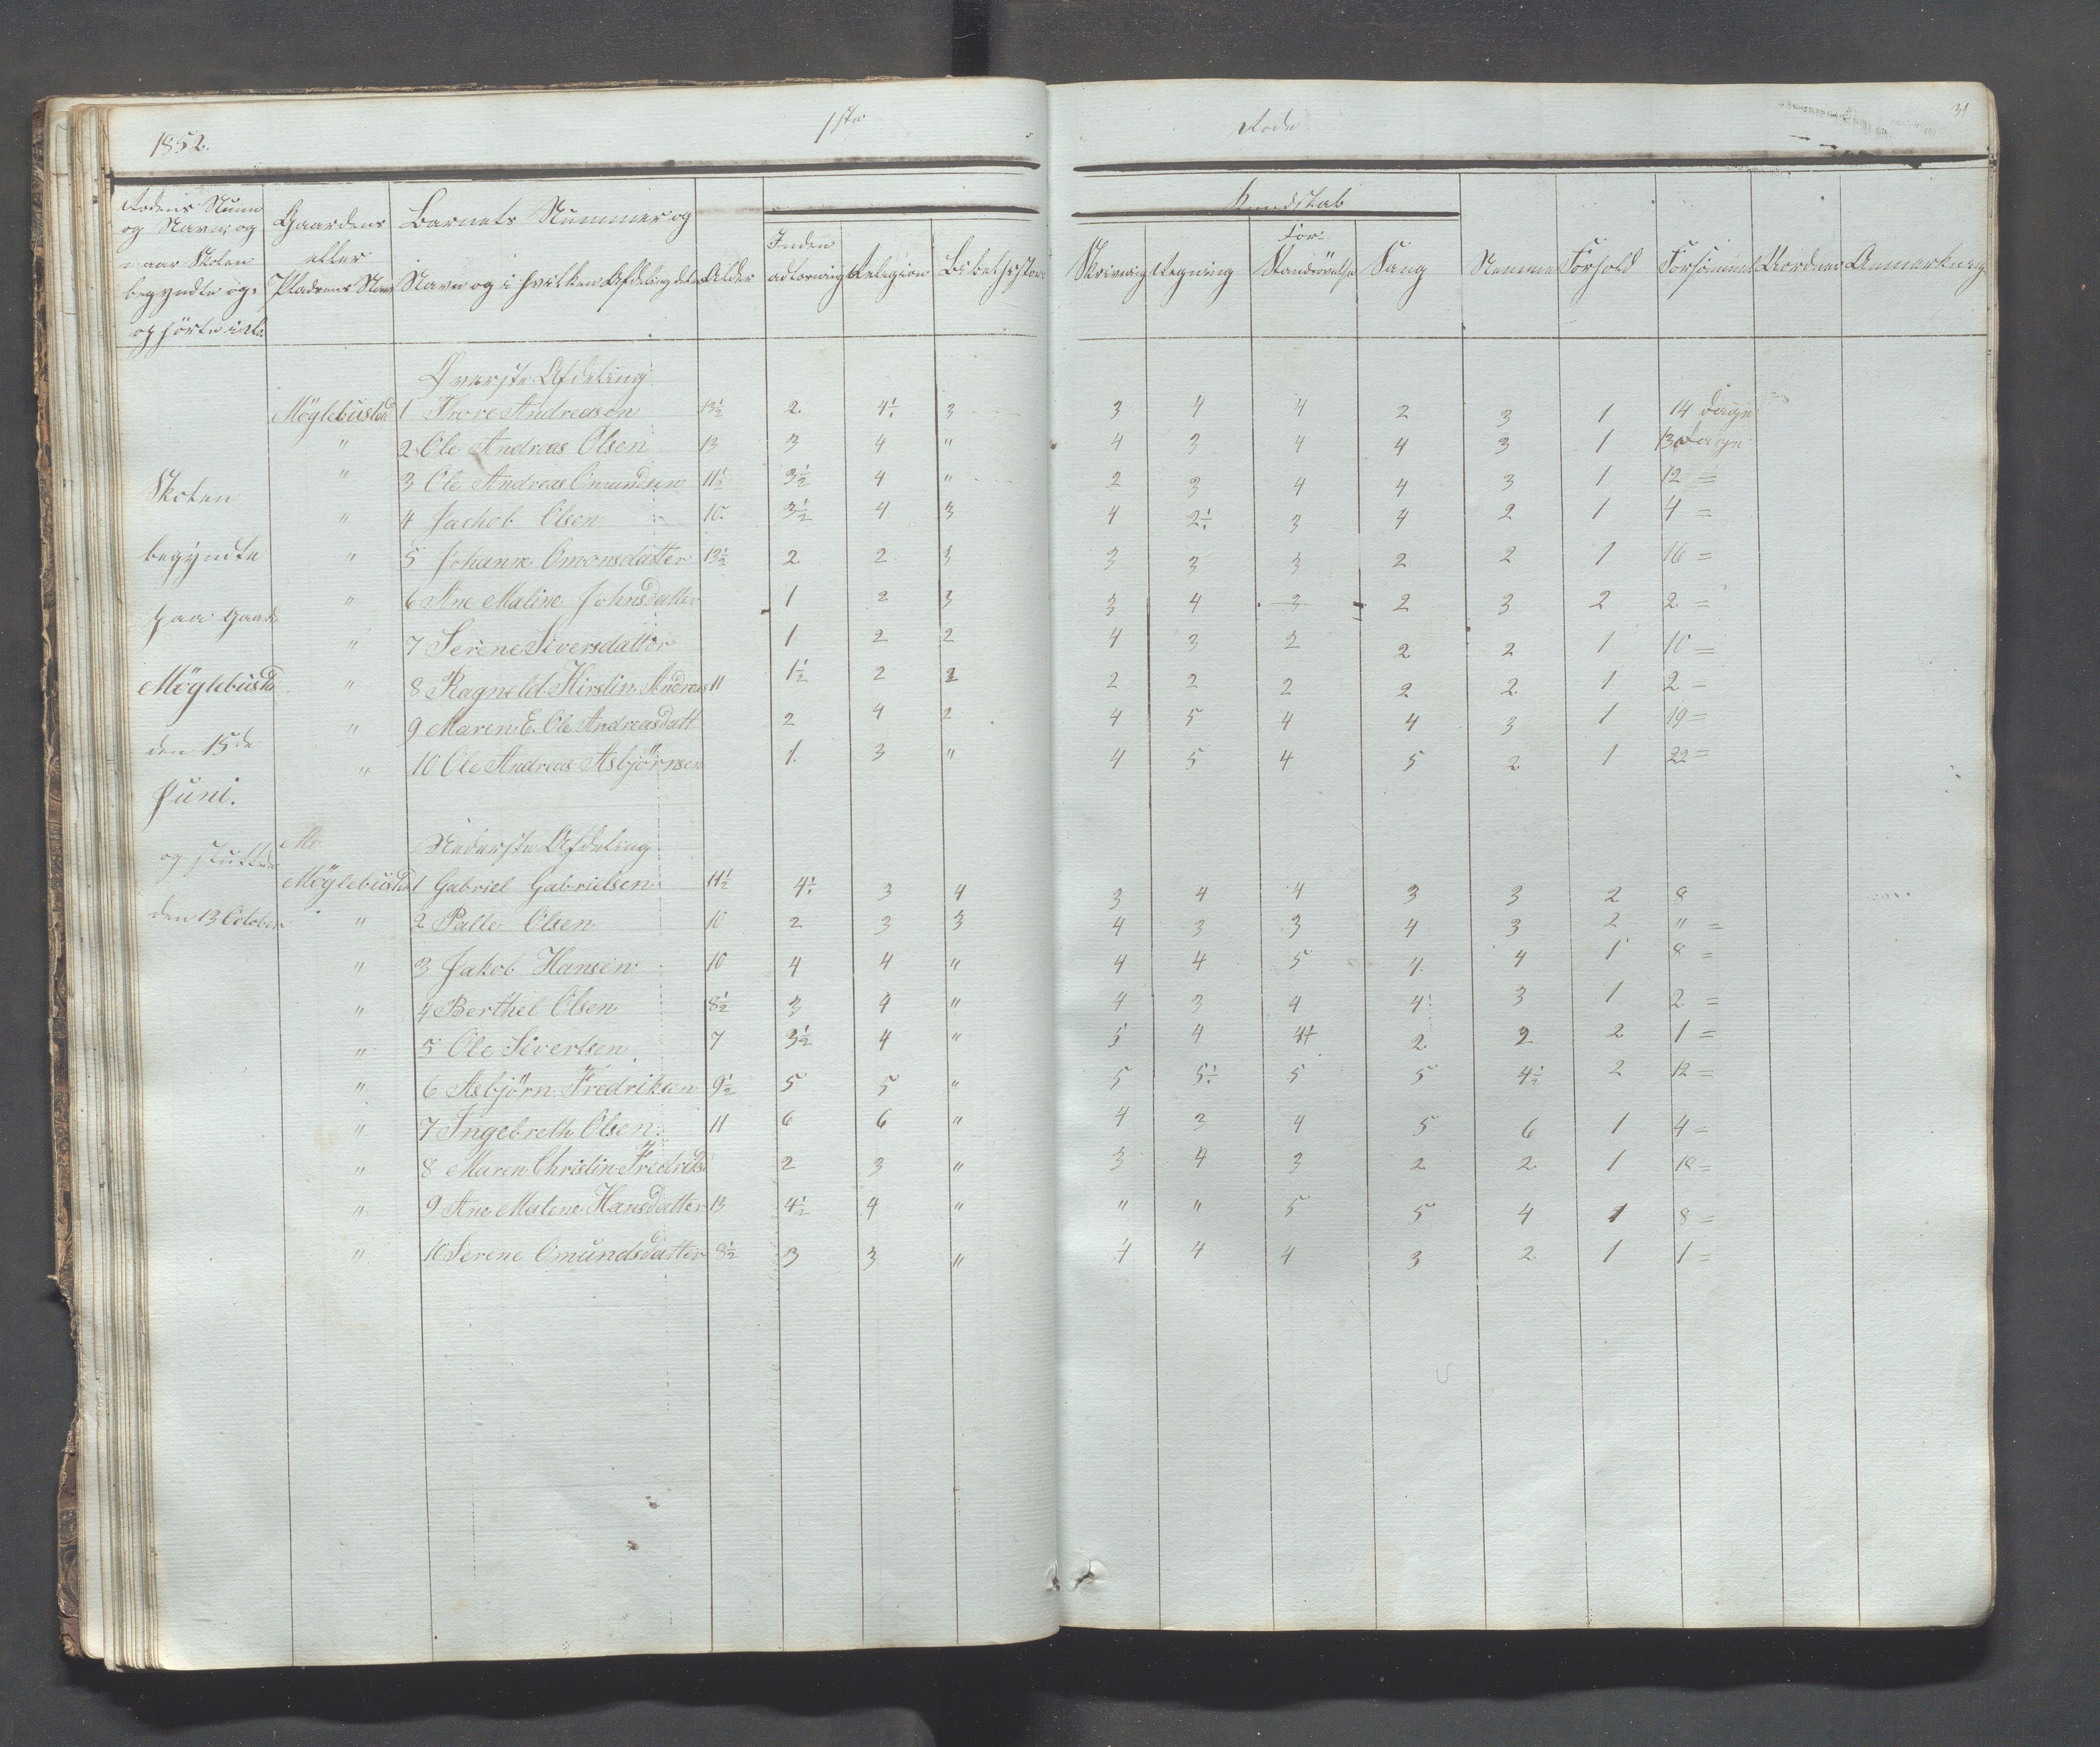 1852. 1ste Rode 31
Rodens Numm Gaardens Barnets Nummer og Kundskab
og Navn og eller Navn og i hvilken Afdeling det er Alder Inden adlæsning Religion Bibelhistorie Skrivning Regning For- standsøvelse Sang Nemme Forhold Forsømmelse Anmerkning
naar Skolen Pladsens Navn
begyndte og
ophørte
Øverste Afdeling
Möglebustad 1 Thore Andreasen 13½ 2. 4½ 3 3 4 4 2 3 1 14 Dage
" 2 Ole Andreas Olsen 13 3 4 " 4 3 4 4 3 1 13 Dage
" 3 Ole Andreas Omundsen 11½ 3½ 4 " 2 3 4 4 3 1 12 =
Skolen
" 4 Jachob Olsen 10. 3½ 4 3 4 2½ 3 4 2 1 4 =
begyndte " 5 Johanne Omonsdatter 13½ 2. 2 3 3 3 3 2 2 1 16 =
" 6 Ane Maline Johnsdatter 1 2 3 3 4 3 2 3 2 2 =
paa Gaard
" 7 Serene Siversdatter 1 2 2 4 3 2 2 2 1 10 =
Möglebustad " 8 Ragneld Kirstin Andreas 11 1½ 2 2 2 2 2 2 2 1 2 =
" 9 Maren E. Ole Andreasdatt 2 4 2 4 5 4 4 3 1 19 =
den 15de
" 10 Ole Andreas Asbjörnsen 1. 3 " 4 5 4 5 2 1 22 =
Juni.
Mö Nederste Afdeling
og sluttede
Möglebustad 1 Gabriel Gabrielsen 11½ 4½ 3 4 3 4 4 3 3 2 8
den 13 October " 2 Palle Olsen 10 2 3 3 4 3 3 4 3 2 " =
" 3 Jakob Hansen 10 4 4 " 4 4 5 4. 4 1 8 =
" 4 Berthel Olsen 8½ 3 4 " 4 3 4 4 3 1 2 =
" 5 Ole Sivertsen 7 3½ 4 " 5 4 4+ 2. 2 2 1 =
" 6 Asbjörn Fredriksen 9½ 5 5 " 5 5½ 5 5 4½ 2 12 =
" 7 Ingebreth Olsen 11 6 6 " 4 3 4 5 6 1 4 =
" 8 Maren Christin Fredriks 2 3 " 3 4 3 2 2. 1 18 =
" 9 Ane Malene Hansdatter 13 4½ 4 " " " 5 5 4 1 8 =
" 10 Serene Omundsdatter 8½ 3 3 " 4 4 4 3 2 1 1 =